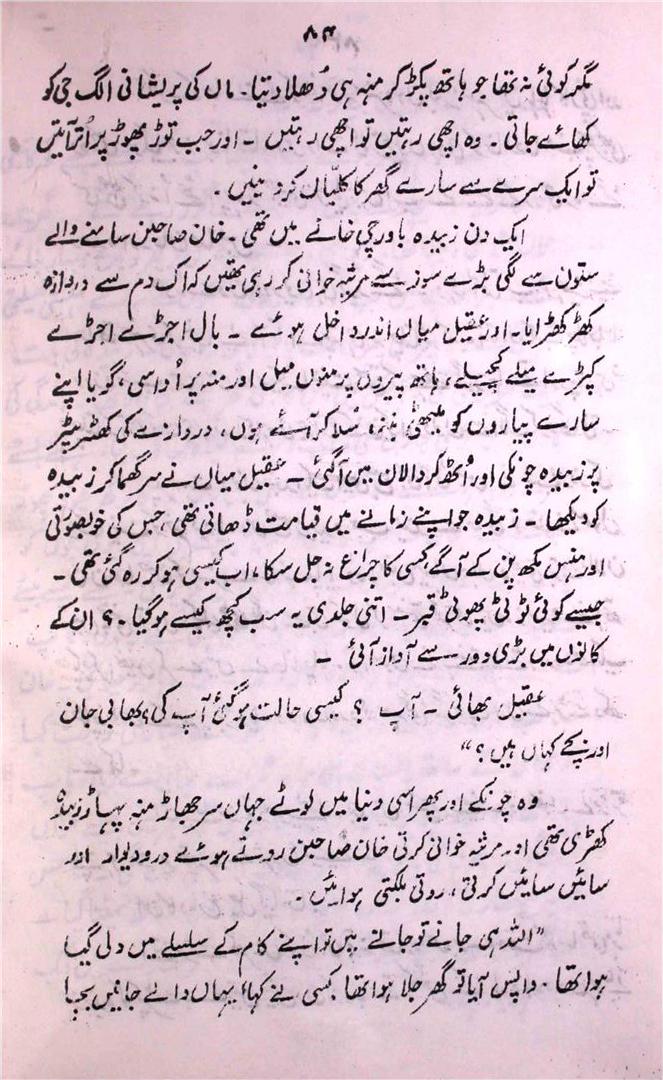 ۸۴
مگر کوئی نہ تھا جو ہاتھ پکڑ کر منہ ہی دُھلا دیتا۔ ماں کی پریشانی الگ جی کو
کھائے جاتی۔ وہ اچھی رہتیں تو اچھی رہتیں ۔ اور جب توڑ پھوڑ پر اُتر آتیں
تو ایک سرے سے سارے گھر کا کلیاں کر دیتیں ۔
ایک دن زبیدہ باورچی خانے میں تھی۔ خان صاحبن سامنے والے
ستون سے لگی بڑے سوز سے مرثیہ خوانی کر رہی تھیں کہ اک دم سے دروازہ
کھڑکھڑایا۔ اور عقیل میاں اندر داخل ہوئے ۔ بال اجڑے اجڑے
کپڑے میلے کچیلے، ہاتھ پیروں پر منوں میل اور منہ پر اُداسی، گویا اپنے
سارے پیاروں کو میٹھی نیند سُلا کر آئے ہوں، دروازے کی کھٹر پٹر
پر زبیدہ چونکی اور اُٹھ کر دالان میں آ گئی ۔ عقیل میاں نے سر گھما کر زبیدہ
کو دیکھا ۔ زبیدہ جو اپنے زمانے میں قیامت ڈھاتی تھی، جس کی خوبصورتی
اور ہنس مکھ پن کے آگے کسی کا چراغ نہ جل سکا، اب کیسی ہو کر رہ گئی تھی ۔
جیسے کوئی ٹوٹی پھوٹی قبر ۔ اتنی جلدی یہ سب کچھ کیسے ہو گیا ۔ ؟ ان کے
کانوں میں بڑی دور سے آواز آئی ۔
عقیل بھائی ۔ آپ ؟ کیسی حالت ہو گئی آپ کی؟ بھابی جان
اور بچے کہاں ہیں؟"
وہ چونکے اور پھر اسی دنیا میں لوٹے جہاں سر جھاڑ منہ پہاڑ زبیدہ
کھڑی تھی اور مرثیہ خوانی کرتی خان صاحبن روتے ہوئے در و دیوار اور
سائیں سائیں کرتی، روتی بلکتی ہوائیں ۔
"اللہ ہی جانے تو جانے میں تو اپنے کام کے سلسلے میں دلی گیا
ہوا تھا۔ واپس آیا تو گھر جلا ہوا تھا کسی نے کہا، یہاں والے جانیں بچا